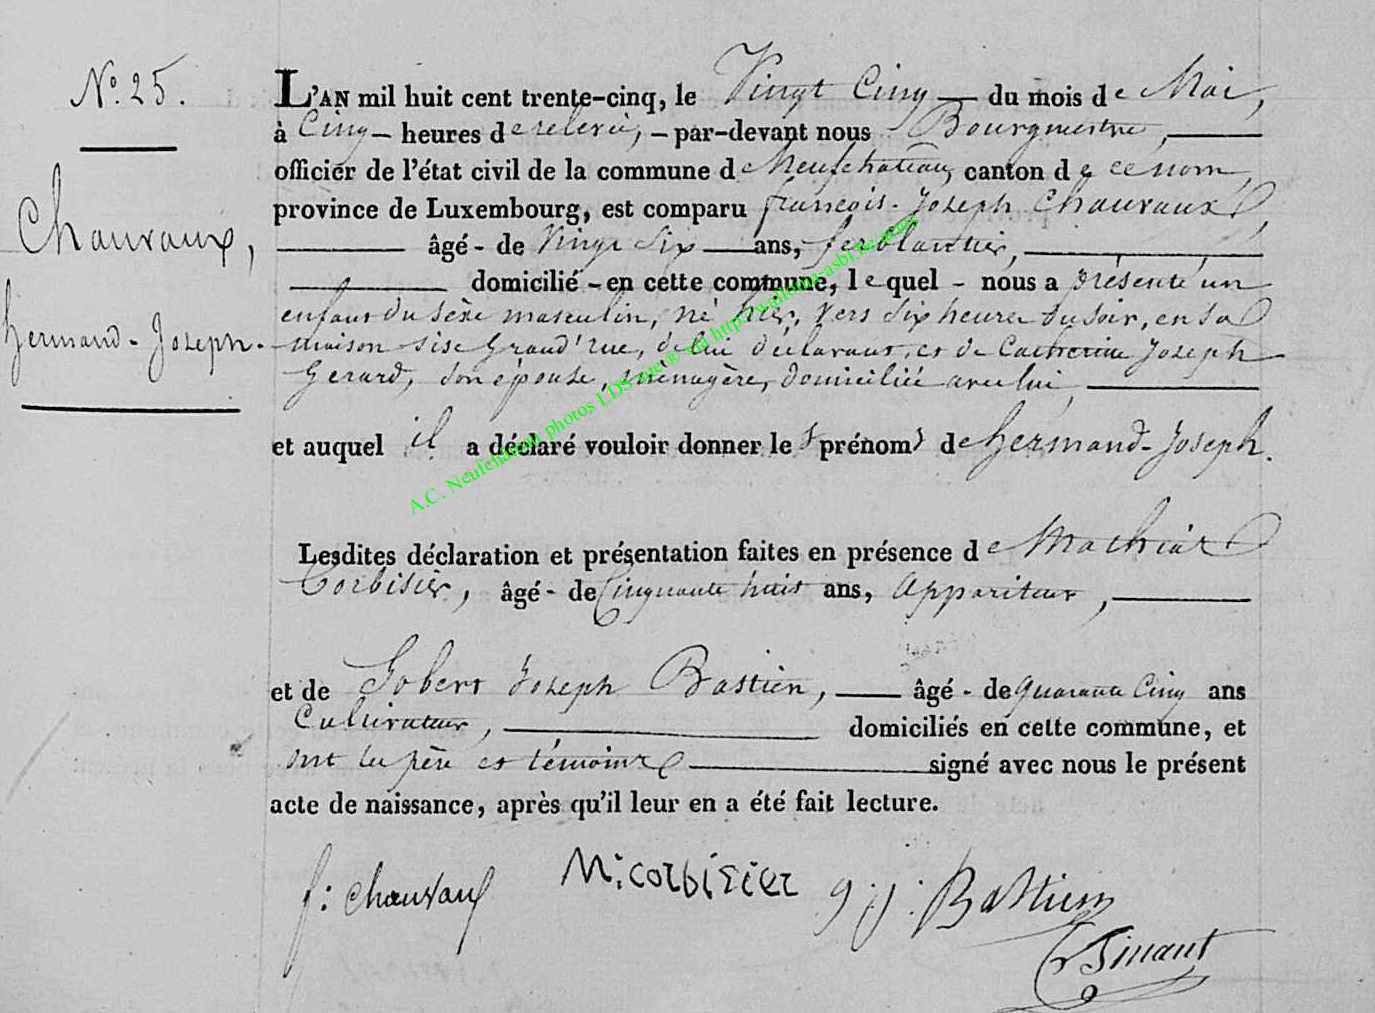 N.° 25.
Chauvaux,
hermand-Joseph.
L'AN mil huit cent trente-cinq, le Vingt Cinq — du mois de Mai,
à Cinq — heures de relevée, — par-devant nous Bourgmestre,
officier de l'état civil de la commune de Neufchateau, canton de ce nom,
province de Luxembourg, est comparu françois-Joseph Chauvaux,
âgé - de Vingt Six ans, ferblantier,
domicilié - en cette commune, lequel - nous a présenté un
enfant du sèxe masculin, né hier, vers Six heures du soir, en sa
maison sise Grand'rue, de lui déclarant, et de Catherine Joseph
Gerard, son épouse, ménagère, domiciliée avec lui,
et auquel il a déclaré vouloir donner les prénoms de hermand-Joseph.
Lesdites déclaration et présentation faites en présence de Mathias
Corbisier, âgé - de Cinquante huit ans, Appariteur,
et de Gobert Joseph Bastien, âgé - de quarante Cinq ans
Cultivateur, domiciliés en cette commune, et
ont les père et témoins signé avec nous le présent
acte de naissance, après qu'il leur en a été fait lecture.
f: chauvaux M: corbisier g: j: Bastien
A.C. Neufchâteau photos LDS via http://wallonia-asbl.be